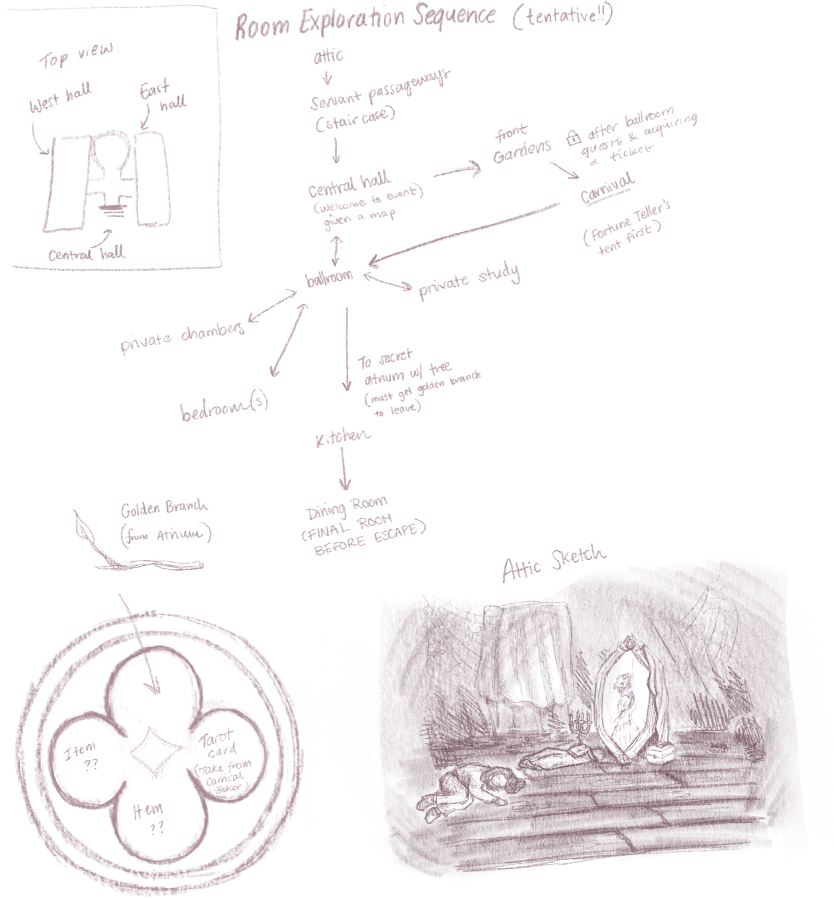 Room Exploration Sequence (tentative!!)
Top view
West hall
East
hall
Central hall
attic
Servant passageways
(staircase)
Central hall
(Welcome to event)
given a map
front
Gardens
after ballroom
quests & acquiring
a ticket
Carnival
(Fortune Teller's
tent first)
ballroom
private study
private chambers
bedroom(s)
To secret
atrium w/ tree
(must get golden branch
to leave)
Kitchen
Dining Room
(FINAL ROOM
BEFORE ESCAPE)
Golden Branch
(from Atrium)
Item
??
Tarot
card
(Take from
Carnival
Joker)
Item
??
Attic Sketch